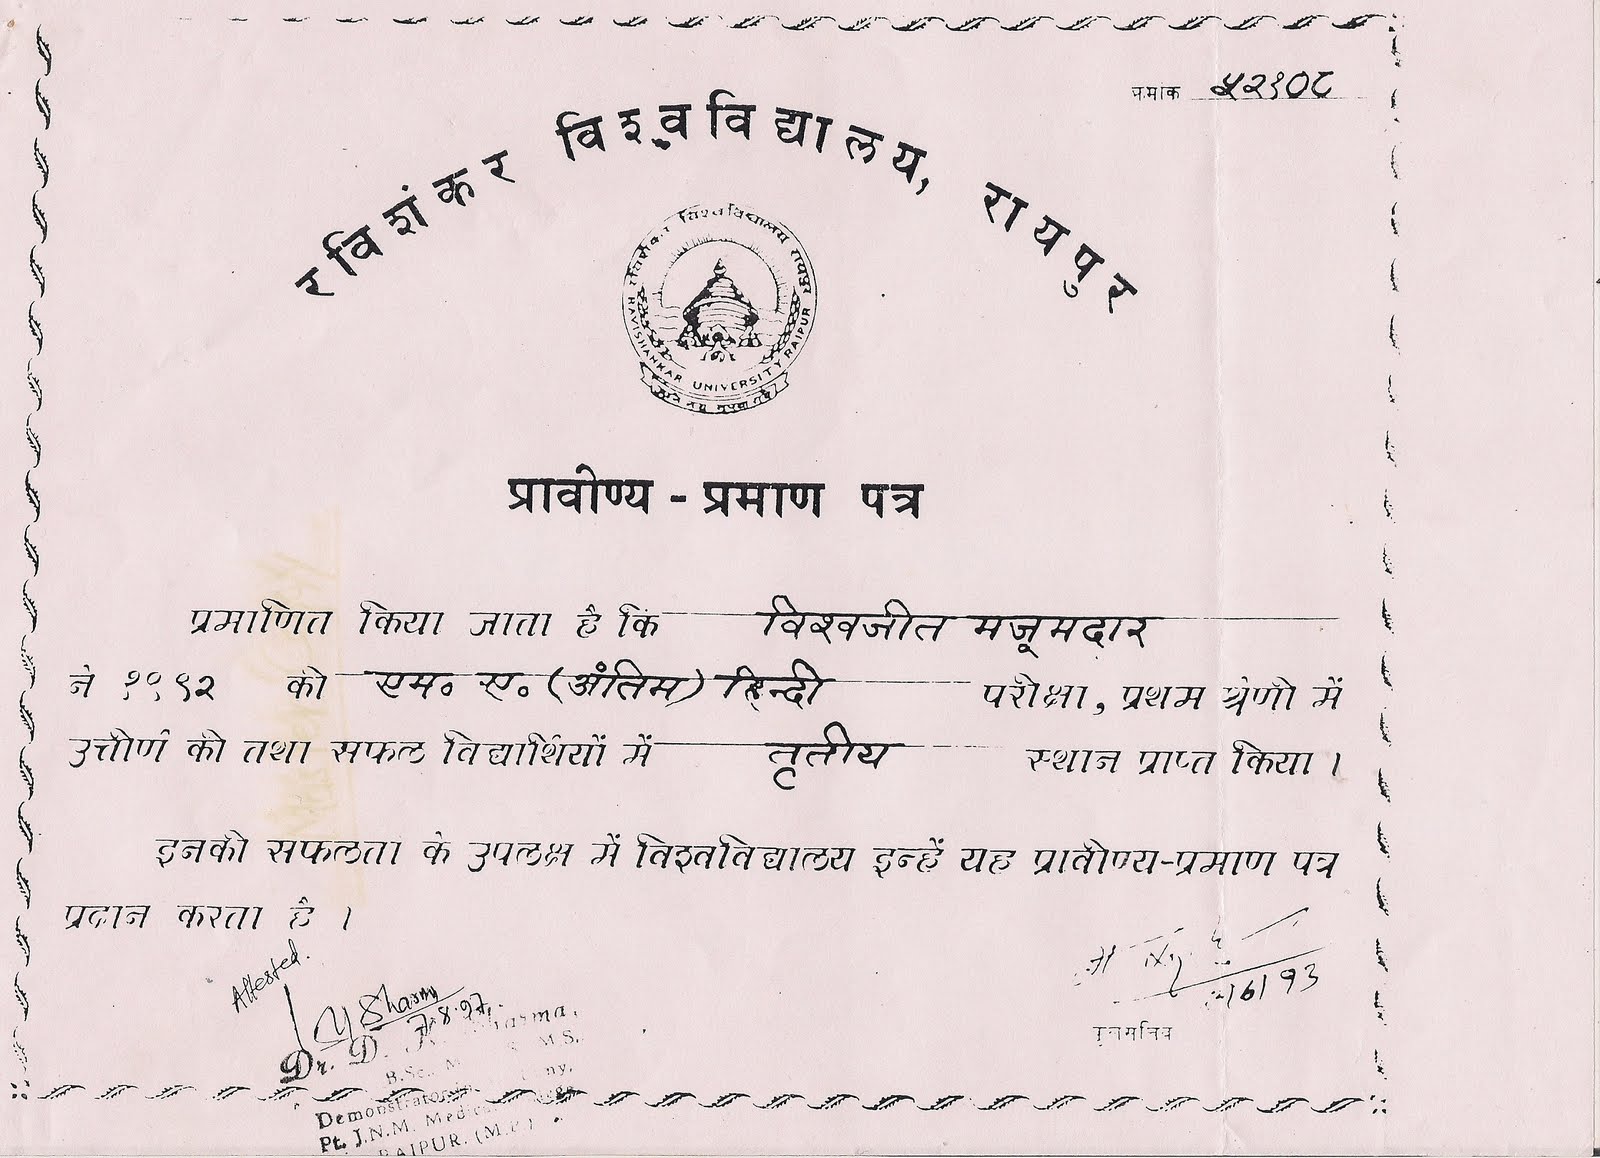 क्रमांक ५२१०८
रविशंकर विश्वविद्यालय, रायपुर
रविशंकर विश्वविद्यालय रायपुर
RAVISHANKAR UNIVERSITY RAIPUR
प्रावीण्य - प्रमाण पत्र
प्रमाणित किया जाता है कि विश्वजीत मजूमदार
ने १९९२ की एम० ए० (अंतिम) हिन्दी परीक्षा, प्रथम श्रेणी में
उत्तीर्ण की तथा सफल विद्यार्थियों में तृतीय स्थान प्राप्त किया ।
इनकी सफलता के उपलक्ष में विश्वविद्यालय इन्हें यह प्रावीण्य-प्रमाण पत्र
प्रदान करता है ।
Attested.
Sharma
/6/93
कुलसचिव
Dr. D. Sharma,
B.Sc., M.S.
Demonstrator
Pt. J.N.M. Medical College
RAIPUR. (M.P.)